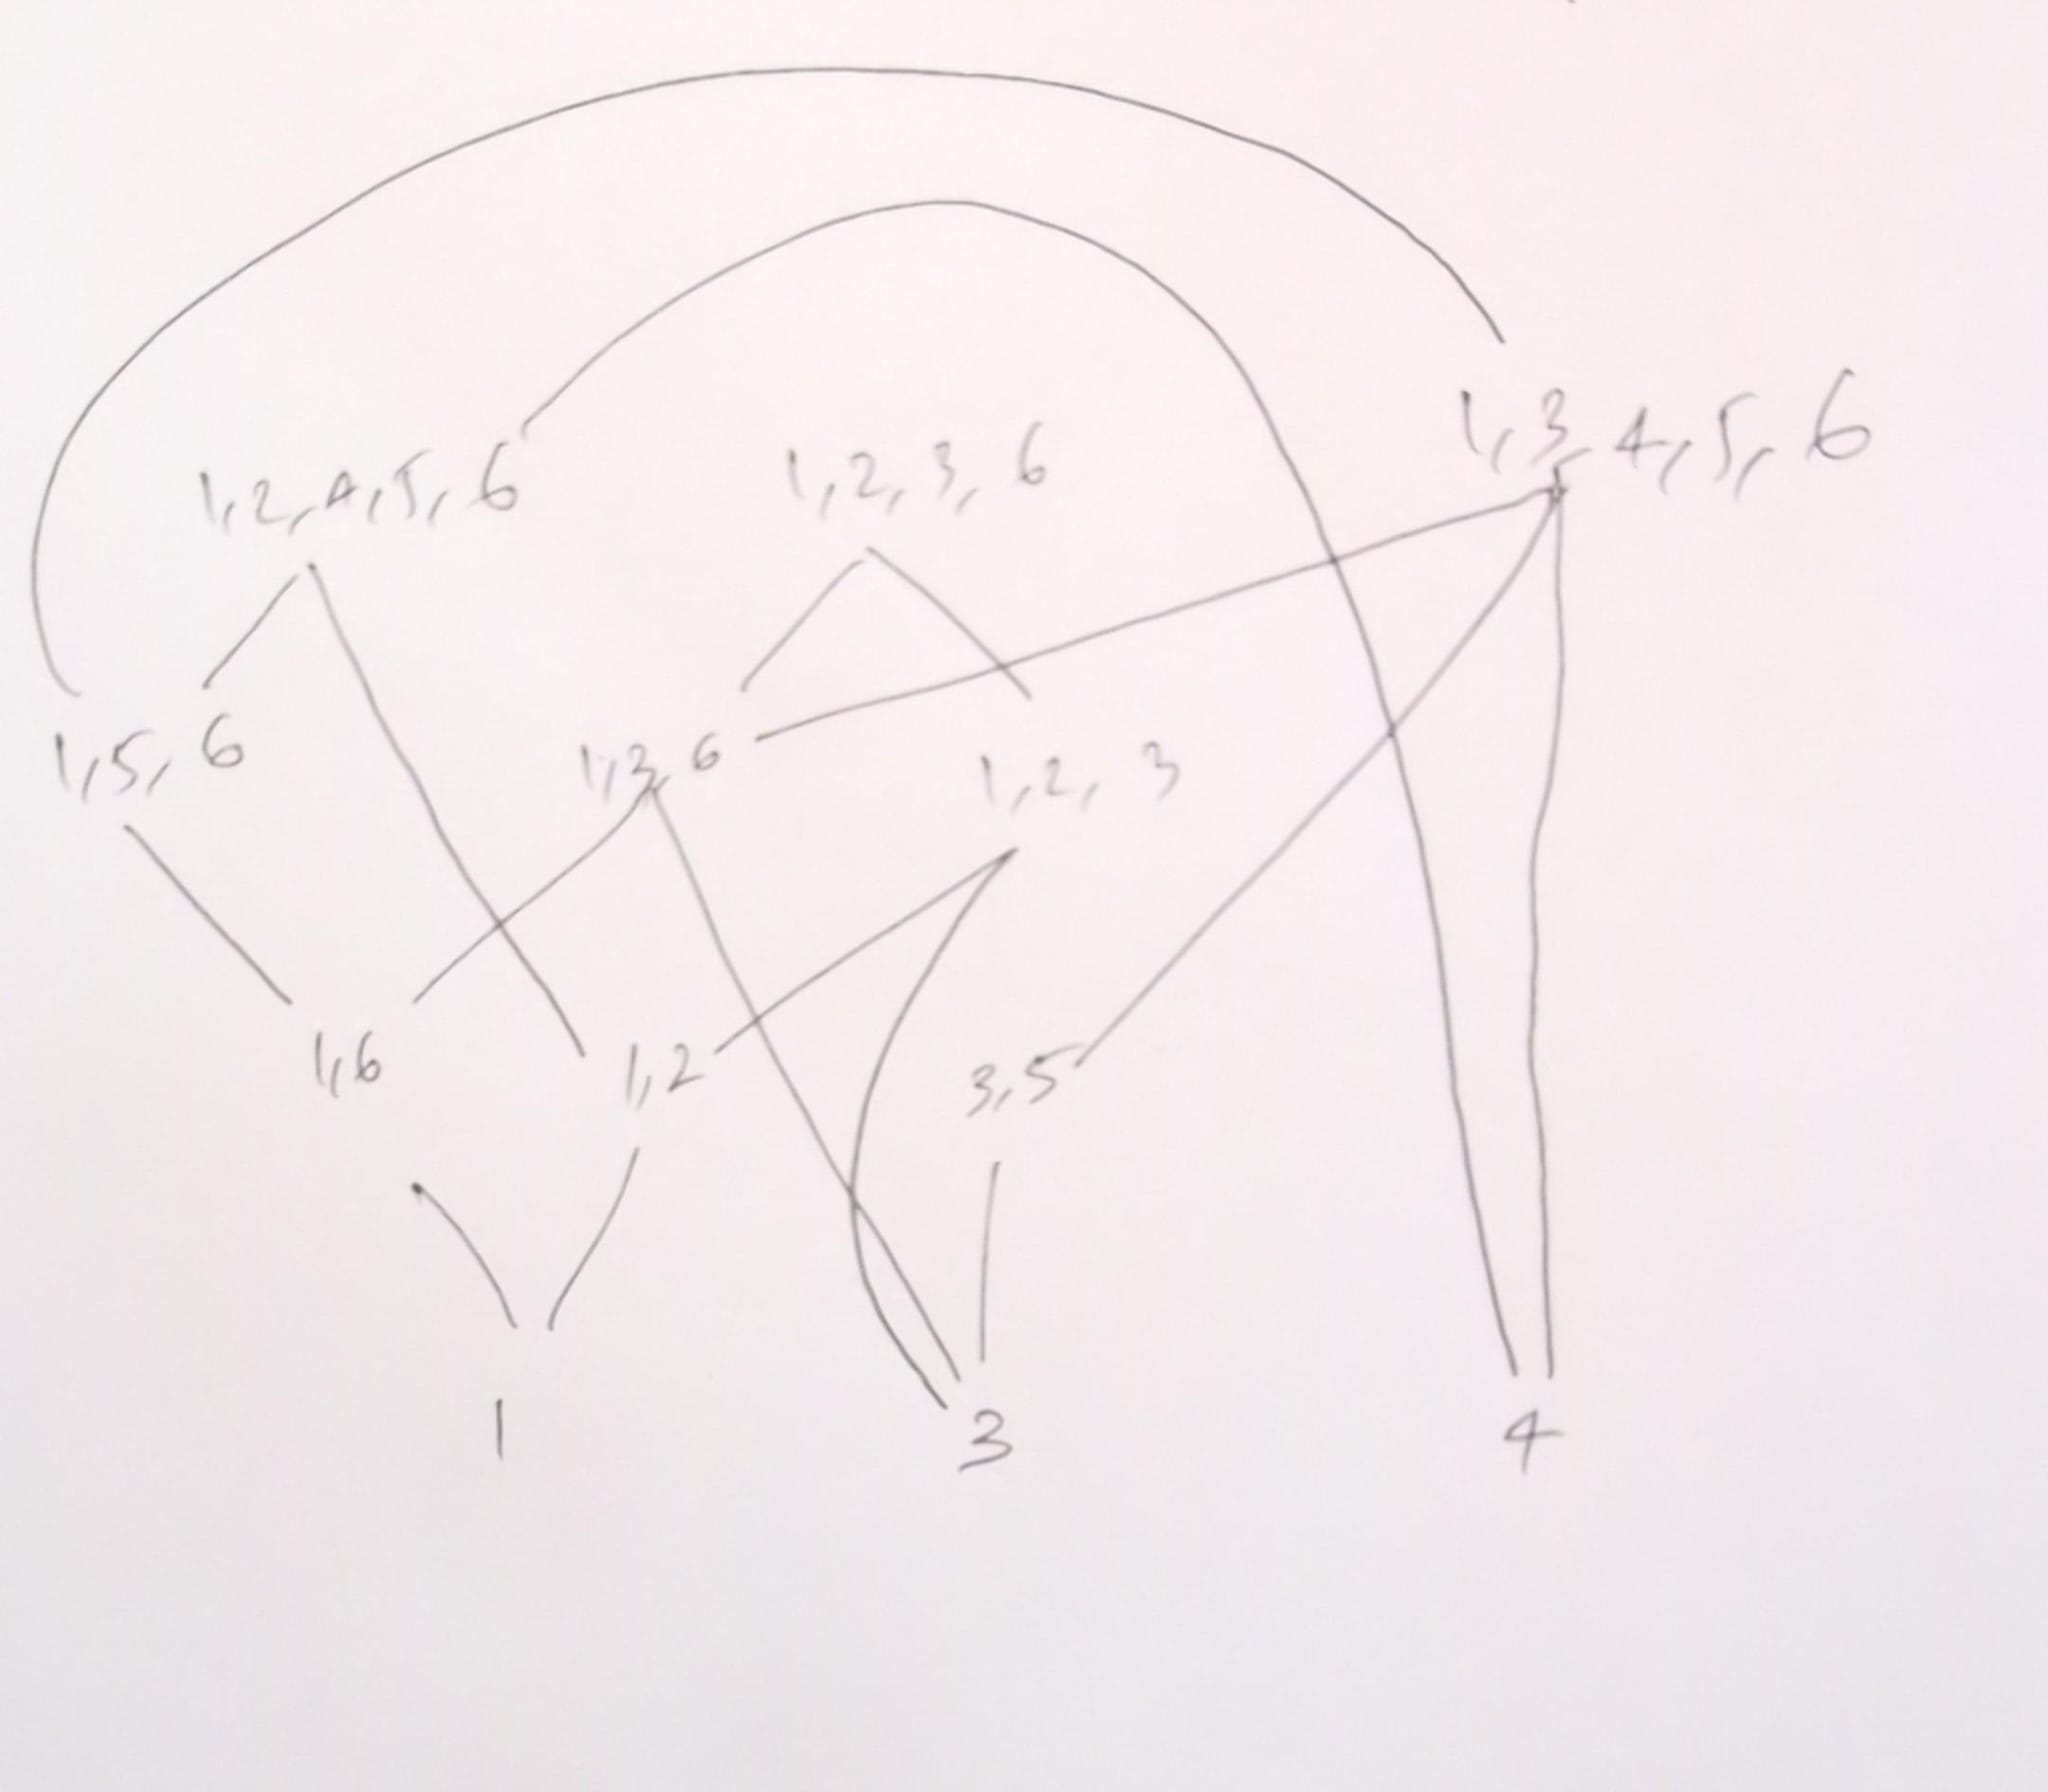 1,3,4,5,6
1,2,4,5,6
1,2,3,6
1,5,6
1,3,6
1,2,3
1,6
1,2
3,5
1
3
4